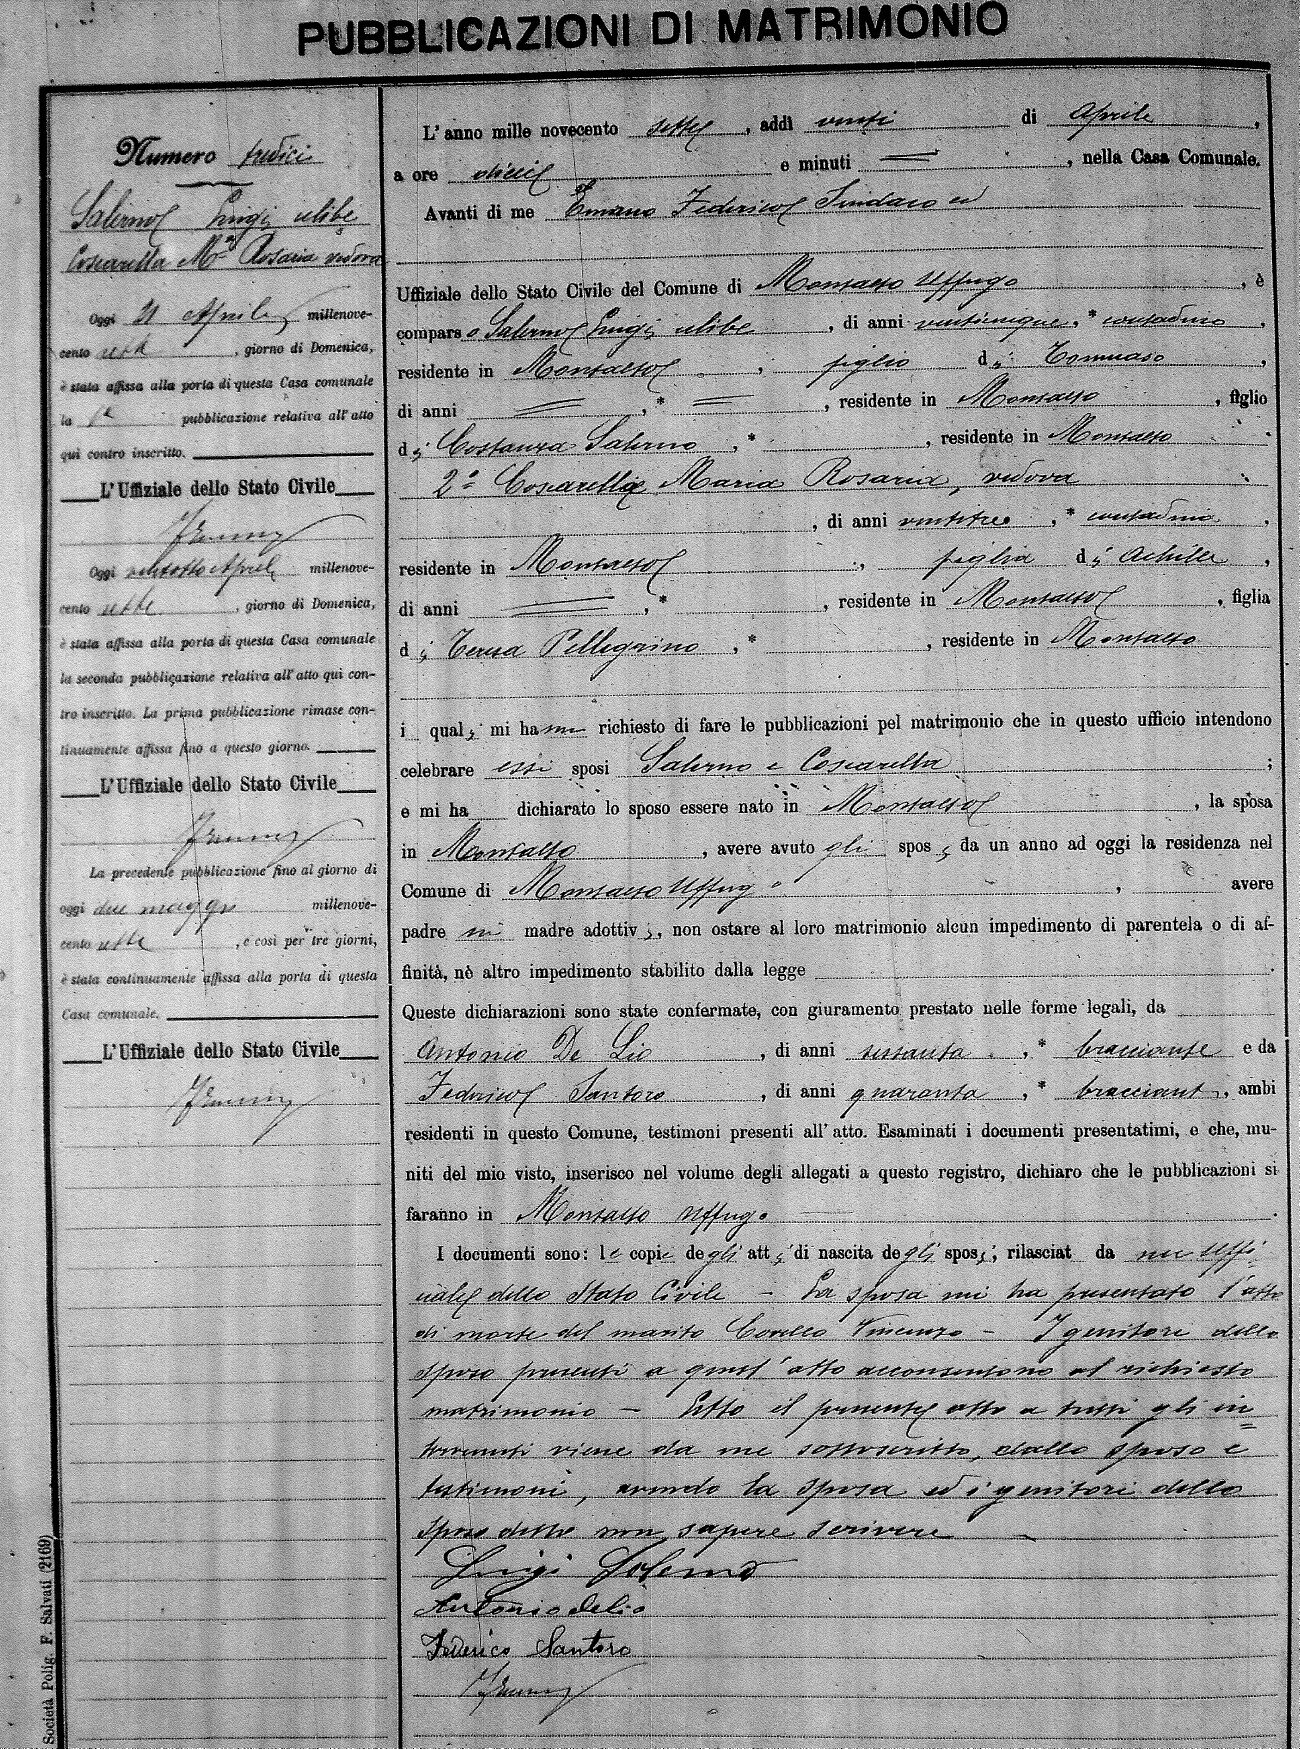 PUBBLICAZIONI DI MATRIMONIO
Numero tredici
Salerno Luigi celibe
Coscarella Mª Rosaria vedova
Oggi 21 Aprile millenove-
cento sette, giorno di Domenica,
è stata affissa alla porta di questa Casa comunale
la 1ª pubblicazione relativa all'atto
qui contro inscritto.
L'Uffiziale dello Stato Civile
Oggi ventotto Aprile millenove-
cento sette, giorno di Domenica,
è stata affissa alla porta di questa Casa comunale
la seconda pubblicazione relativa all'atto qui con-
tro inscritto. La prima pubblicazione rimase con-
tinuamente affissa fino a questo giorno.
L'Uffiziale dello Stato Civile
La precedente pubblicazione fino al giorno di
oggi due maggio millenove-
cento sette, e così per tre giorni,
è stata continuamente affissa alla porta di questa
Casa comunale.
L'Uffiziale dello Stato Civile
Società Polig. F. Salvati (2169)
L'anno mille novecento sette, addì venti di Aprile,
a ore dieci e minuti =, nella Casa Comunale.
Avanti di me Federico Sindaco ed
Uffiziale dello Stato Civile del Comune di Montalto Uffugo, è
comparso Salerno Luigi celibe, di anni venticinque, * contadino,
residente in Montalto, figlio di Tommaso,
di anni =, * =, residente in Montalto, figlio
di Costanza Salerno, *, residente in Montalto.
2ª Coscarella Maria Rosaria, vedova
, di anni ventitre, * contadina,
residente in Montalto, figlia di Achille,
di anni =, *, residente in Montalto, figlia
di Teresa Pellegrino, *, residente in Montalto
i quali mi hanno richiesto di fare le pubblicazioni pel matrimonio che in questo ufficio intendono
celebrare essi sposi Salerno e Coscarella;
e mi ha dichiarato lo sposo essere nato in Montalto, la sposa
in Montalto, avere avuto gli sposi da un anno ad oggi la residenza nel
Comune di Montalto Uffugo, avere
padre nè madre adottivi, non ostare al loro matrimonio alcun impedimento di parentela o di af-
finità, nè altro impedimento stabilito dalla legge.
Queste dichiarazioni sono state confermate, con giuramento prestato nelle forme legali, da
Antonio De Lio, di anni sessanta, * bracciante e da
Federico Santoro, di anni quaranta, * bracciante, ambi
residenti in questo Comune, testimoni presenti all'atto. Esaminati i documenti presentatimi, e che, mu-
niti del mio visto, inserisco nel volume degli allegati a questo registro, dichiaro che le pubblicazioni si
faranno in Montalto Uffugo.
I documenti sono: le copie degli atti di nascita degli sposi, rilasciat da me Uffi-
ciale dello Stato Civile – La sposa mi ha presentato l'atto
di morte del marito Covello Vincenzo – I genitori dello
sposo presenti a quest'atto acconsentono al richiesto
matrimonio – Letto il presente atto a tutti gli in=
tervenuti viene da me sottoscritto, dallo sposo e
testimoni, avendo la sposa ed i genitori dello
sposo detto non sapere scrivere
Luigi Salerno
Antonio delio
Federico Santoro